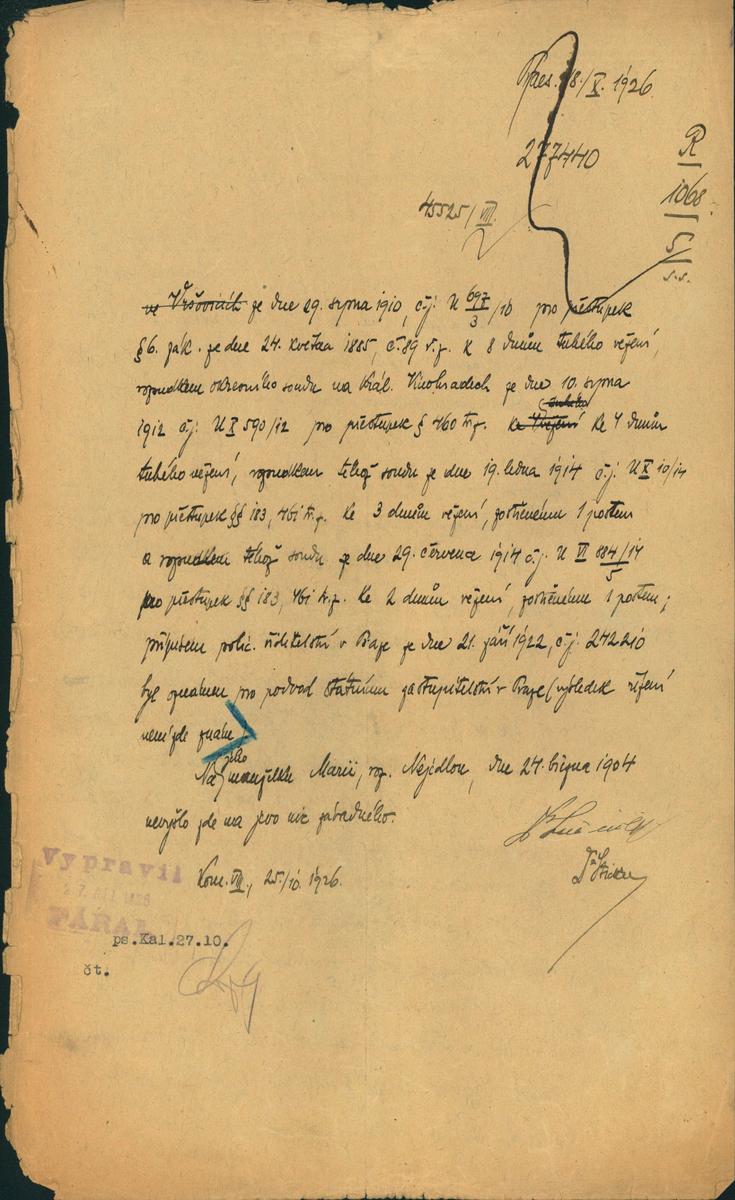 Praes. 18./X. 1926.
277440
R
1068
5
s.s.
45525/VIII.
ve Vršovicích ze dne 29. srpna 1910, č.j. U 697/3/10 pro přestupek
§ 6. zák. ze dne 24. května 1885, č. 89 ř.z. k 8 dnům tuhého vězení,
rozsudkem okresního soudu na Král. Vinohradech ze dne 10. srpna
1912 č.j. U X 590/12 pro přestupek § 460 tr.z. ke 4 dnům
tuhého vězení, rozsudkem téhož soudu ze dne 19. ledna 1914 č.j. U X 10/14
pro přestupek §§ 183, 461 tr.z. ke 3 dnům vězení, zostřenému 1 postem
a rozsudkem téhož soudu ze dne 29. června 1914 č.j. U VI 884/14/5
pro přestupek §§ 183, 461 tr.z. ke 2 dnům vězení, zostřenému 1 postem;
přípisem polic. ředitelství v Praze ze dne 21. září 1922, č.j. 242210
byl oznámen pro podvod státnímu zastupitelství v Praze (výsledek řízení
není zde znám).
Na jeho manželku Marii, roz. Nejedlou, dne 24. března 1904
nevyšlo zde na jevo nic závadného.
Kom. VIII., 25./10. 1926.
Vypravil
FÁRAL
ps.Kal.27.10.
čt.